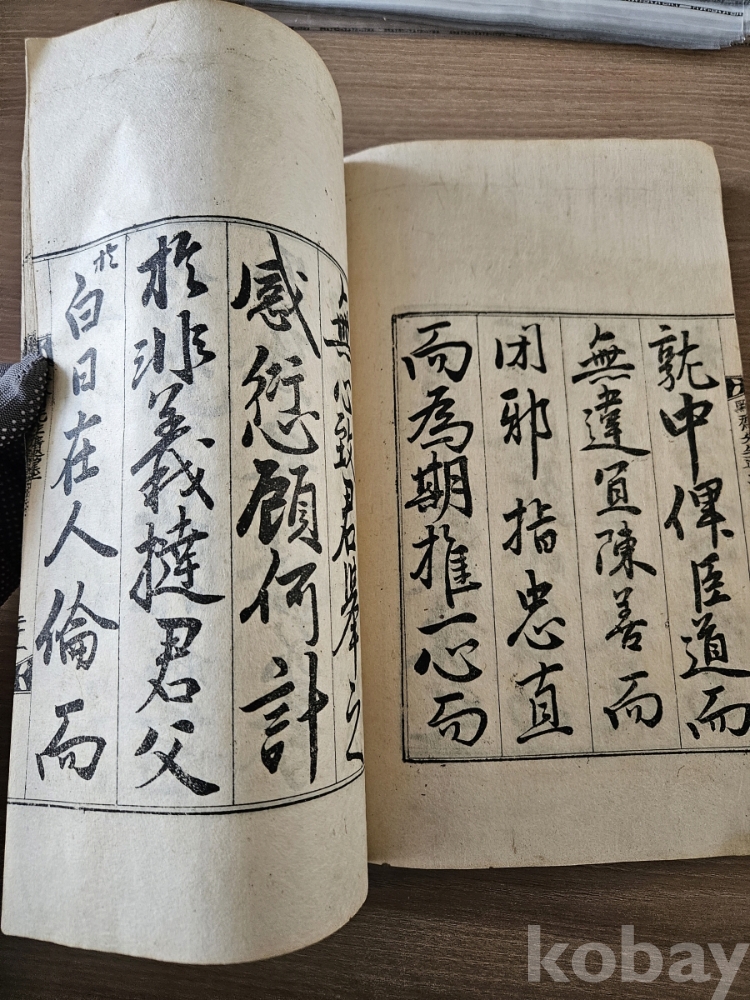 就中俾臣道而
無違宜陳善而
閉邪指忠直
而為期推一心而
無心致君舉之
感愆顧何計
於非義撻君父
於白日在人倫而
kobay